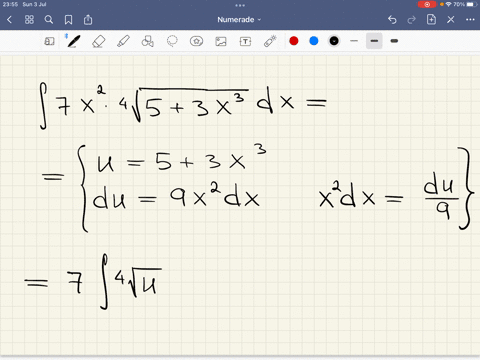 23:55 Sun 3 Jul
70%
Numerade
∫ 7x² · ⁴√(5 + 3x³) dx =
= { u = 5 + 3x³
du = 9x²dx x²dx = du/9 }
= 7 ∫ ⁴√u